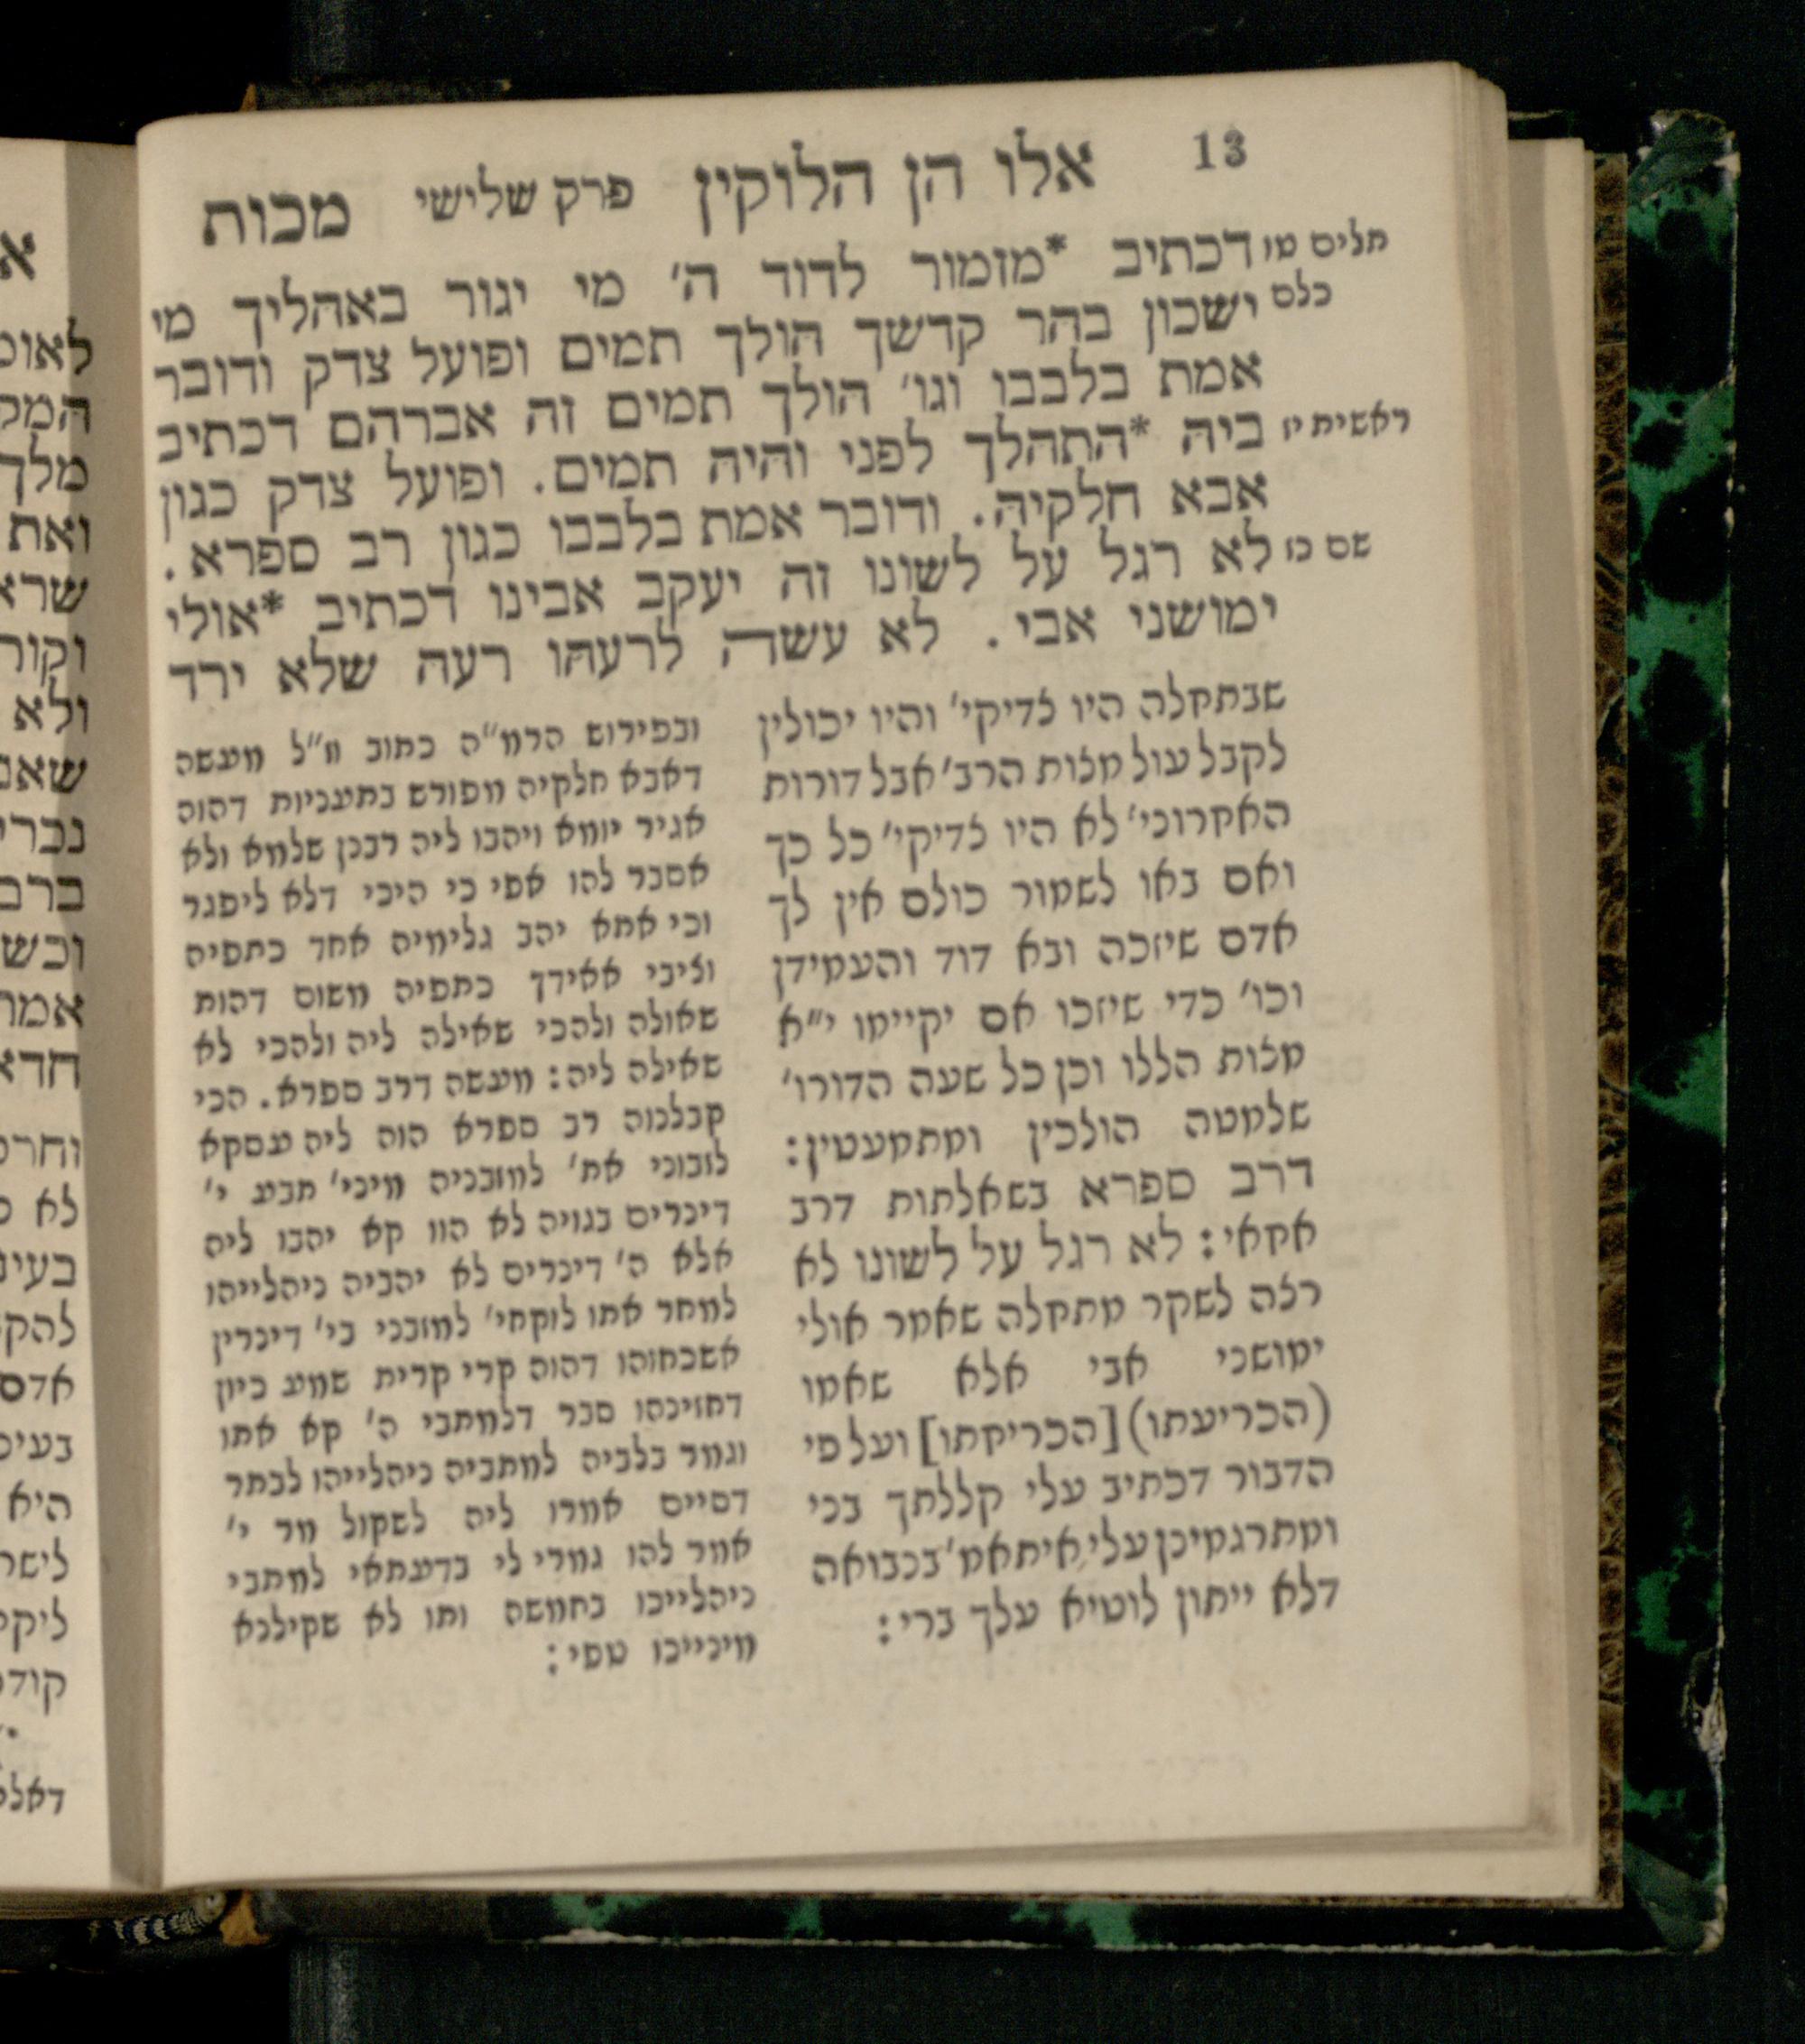 13 אלו הן הלוקין פרק שלישי מכות
תלים טו
כלם
ראשית יז
שם כז
דכתיב *מזמור לדוד ה' מי יגור באהליך מי
ישכון בהר קדשך הולך תמים ופועל צדק ודובר
אמת בלבבו וגו' הולך תמים זה אברהם דכתיב
ביה *התהלך לפני והיה תמים. ופועל צדק כגון
אבא חלקיה. ודובר אמת בלבבו כגון רב ספרא.
לא רגל על לשונו זה יעקב אבינו דכתיב *אולי
ימושני אבי. לא עשה לרעהו רעה שלא ירד
שבתחלה היו צדיקי' והיו יכולין
לקבל עול מצות הרב' אבל דורות
האחרוני' לא היו צדיקי' כל כך
ואם באו לשמור כולם אין לך
אדם שיזכה ובא דוד והעמידן
וכו' כדי שיזכו אם יקיימו י״א
מצות הללו וכן כל שעה הדורו'
שלמטה הולכין ומתמעטין:
דרב ספרא בשאלתות דרב
אחאי: לא רגל על לשונו לא
רצה לשקר מתחלה שאמר אולי
ימושני אבי אלא שאמו
(הכריעתו) [הכריחתו] ועל פי
הדבור דכתיב עלי קללתך בני
ומתרגמינן עלי איתאמ' בנבואה
דלא ייתון לוטיא עלך ברי:
ובפירוש הרמ״ה כתוב ז״ל מעשה
דאבא חלקיה מפורש בתעניות דהוה
אגיר יומא ויהבו ליה רבנן שלמא ולא
אסבר להו אפי כי היכי דלא ליפגר
וכי אתא יהב גלימיה אחד כתפיה
וציבי אאידך כתפיה משום דהות
שאולה ולהכי שאילה ליה ולהכי לא
שאילה ליה: מעשה דרב ספרא. הכי
קבלנוה רב ספרא הוה ליה עסקא
לזבוני את' למזבניה מיני' תבע י'
דינרים בגויה לא הוו קא יהבו ליה
אלא ה' דינרים לא יהביה ניהלייהו
למחר אתו לוקחי' למזבני בי' דינרין
אשכחוהו דהוה קרי קרית שמע כיון
דחזינהו סבר דלמתבי ה' קא אתו
וגמר בלביה למתביה ניהלייהו לבתר
דסיים אמרו ליה לשקול מר י'
אמר להו גמרי לי בדעתאי למתבי
ניהלייכו בחמשה ותו לא שקילנא
מינייכו טפי: